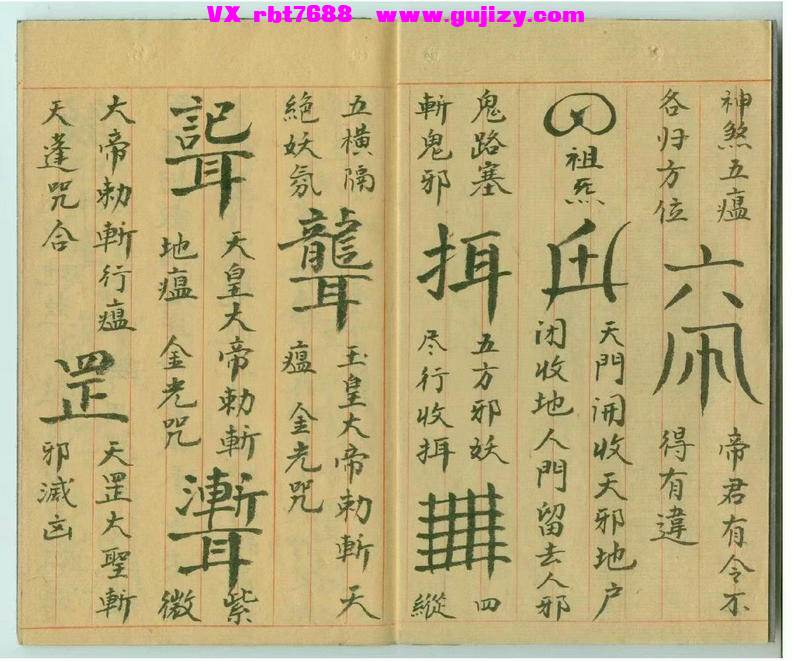 VX rbt7688 www.gujizy.com
神煞五瘟
各归方位
帝君有令不
得有違
祖炁
天門開收天邪地户
闭收地人門留去人邪
鬼路塞
斬鬼邪
挕
五方邪妖
尽行收挕
四
縱
五横隔
絶妖氛
聾
玉皇大帝勅斬天
瘟 金光咒
天皇大帝勅斬
地瘟 金光咒
紫
微
大帝勅斬行瘟
天蓬咒合
罡
天罡大聖斬
邪滅凶